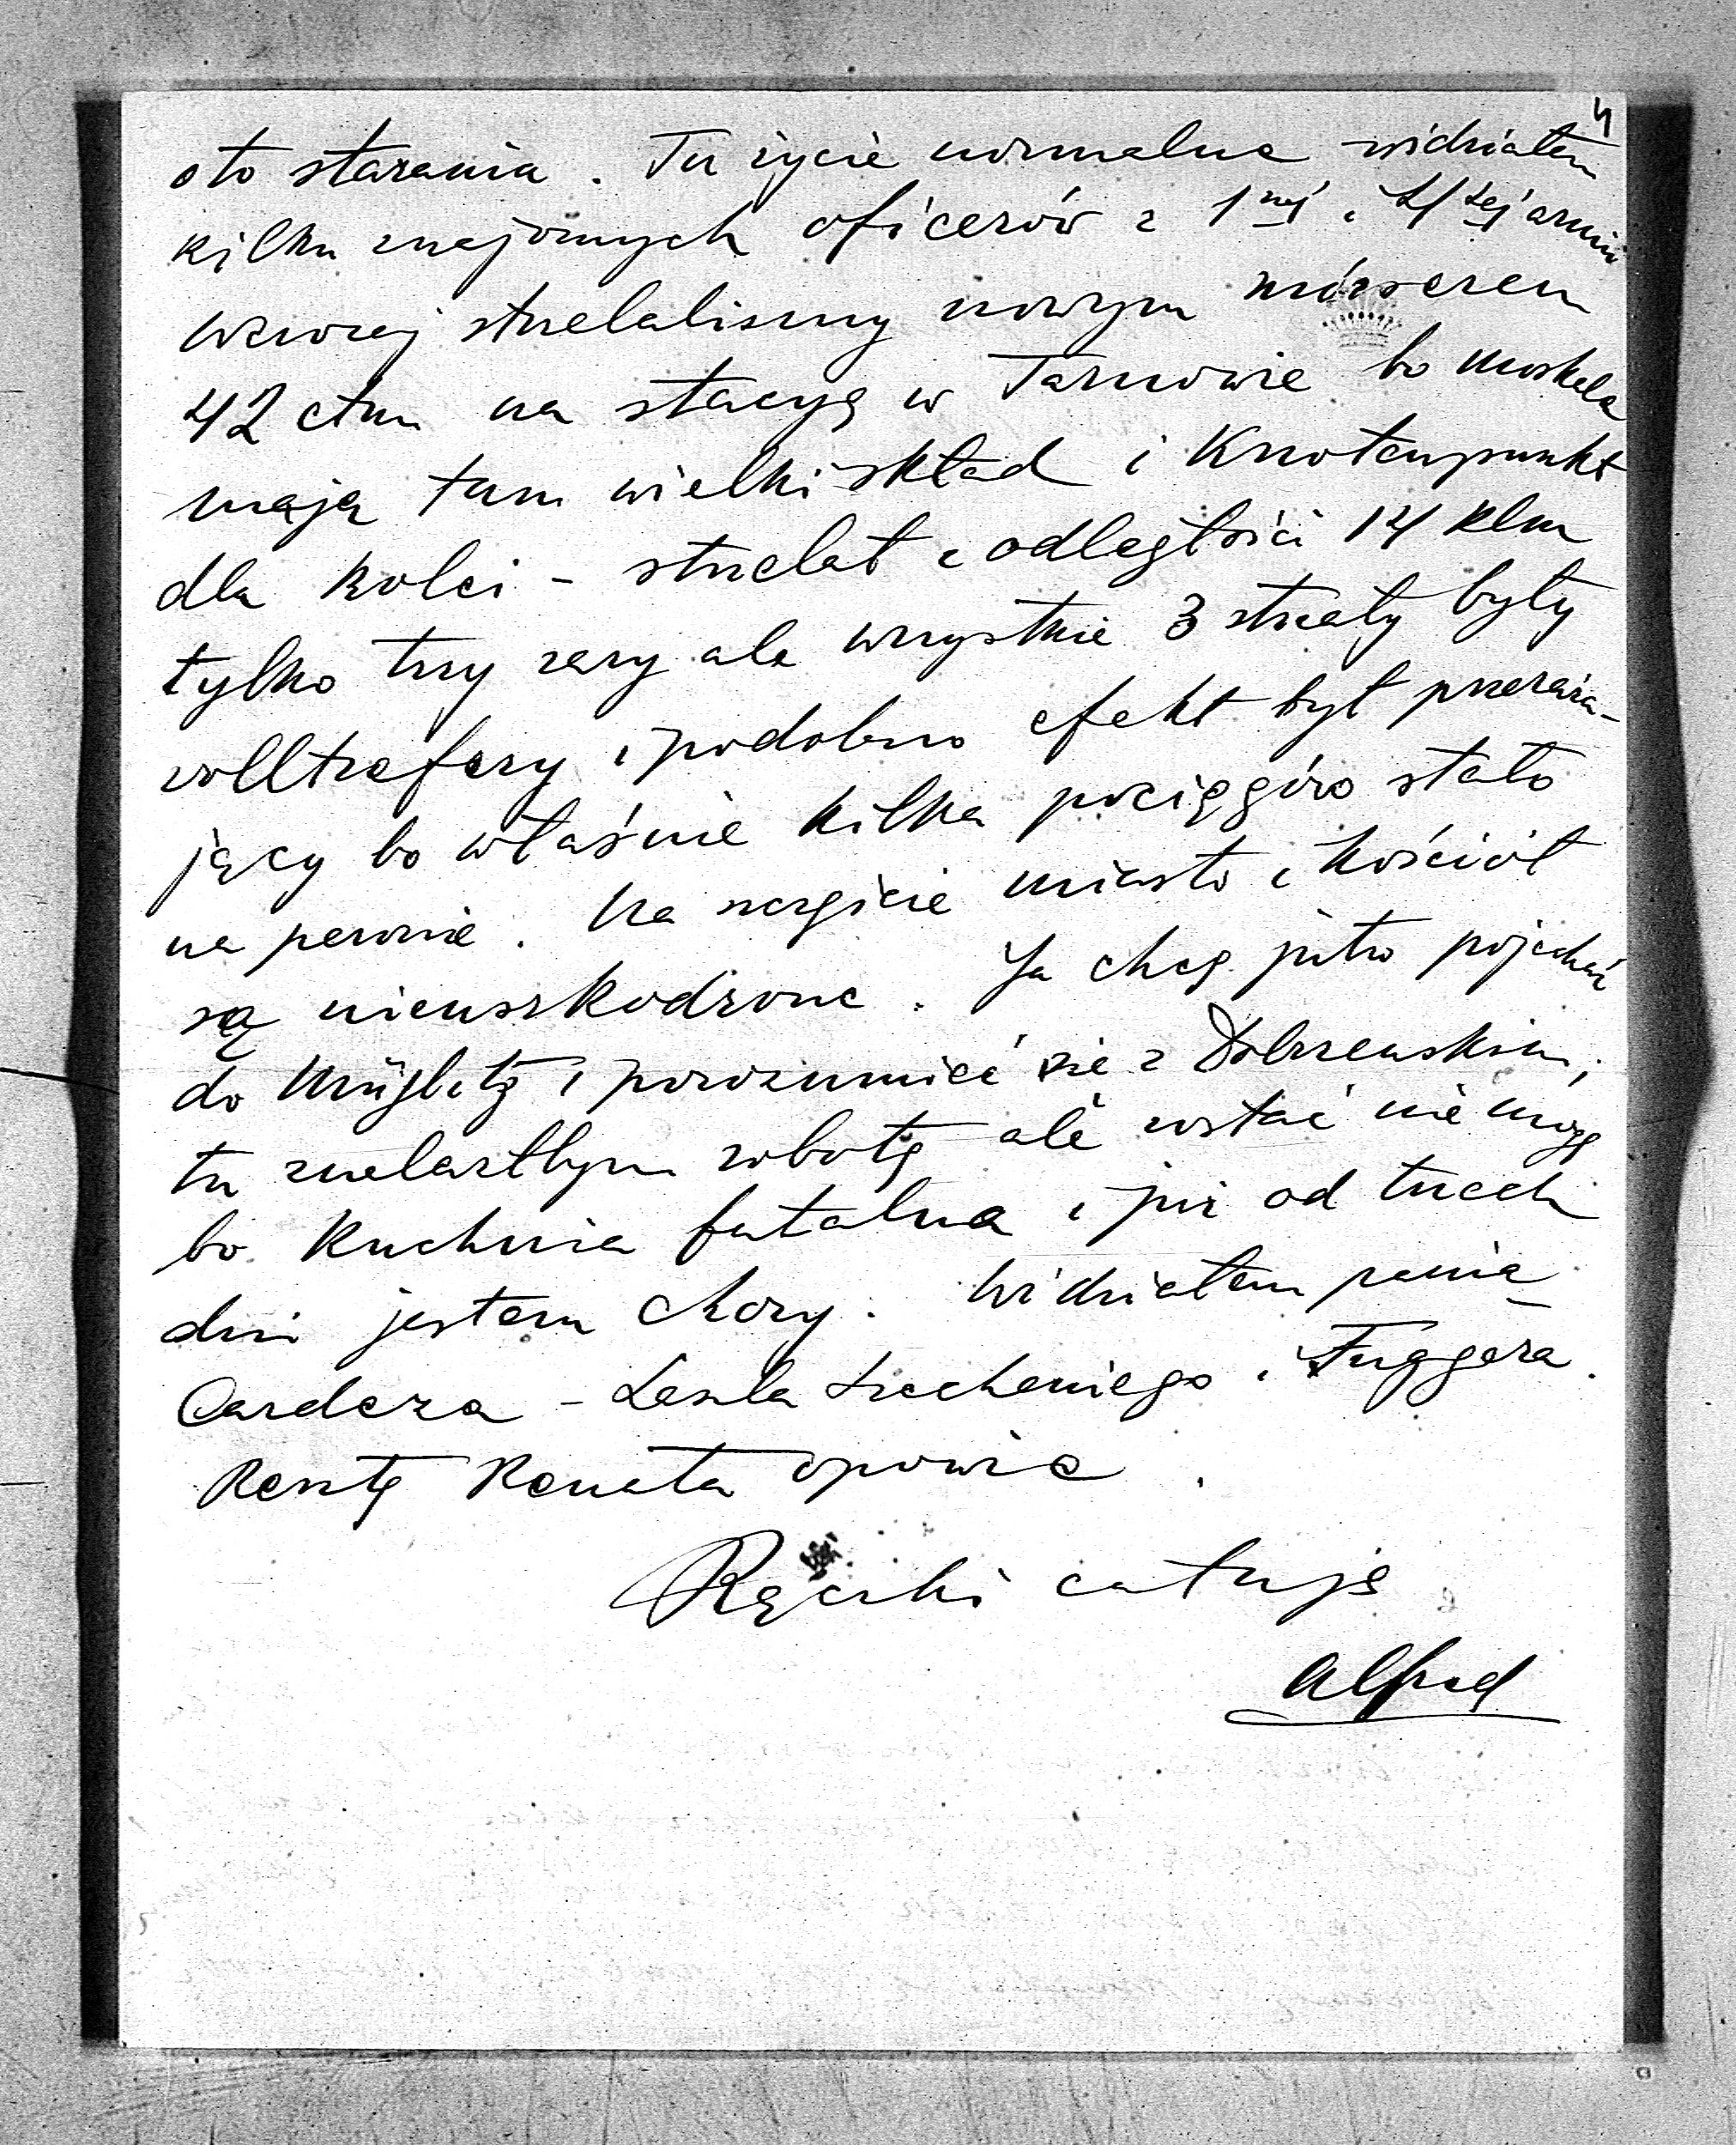 4
o to starania. Tu życie normalne widziałem
kilku znajomych oficerów z 1ej i 4tej armii
wczoraj strzelaliśmy nowym mörserem
42 ctm na stacyę w Tarnowie bo moskale
mają tam wielki skład i Knotenpunkt
dla kolei - strzelał z odległości 14 klm
tylko trzy razy ale wszystkie 3 strzały były
volltrefery i podobno efekt był przeraża-
jący bo właśnie kilka pociągów stało
na peronie. Na szczęście miasto i kościół
są nieuszkodzone. Ja chcę jutro pojechać
do Müglitz i porozumieć się z Dobrzenskim;
tu znelazłbym robotę ale zostać nie mogę
bo kuchnia fatalna i już od trzech
dni jestem chory. Widziałem panią
- Fuggera.
Resztę Renata opowie.
Rączki całuję
Alfred